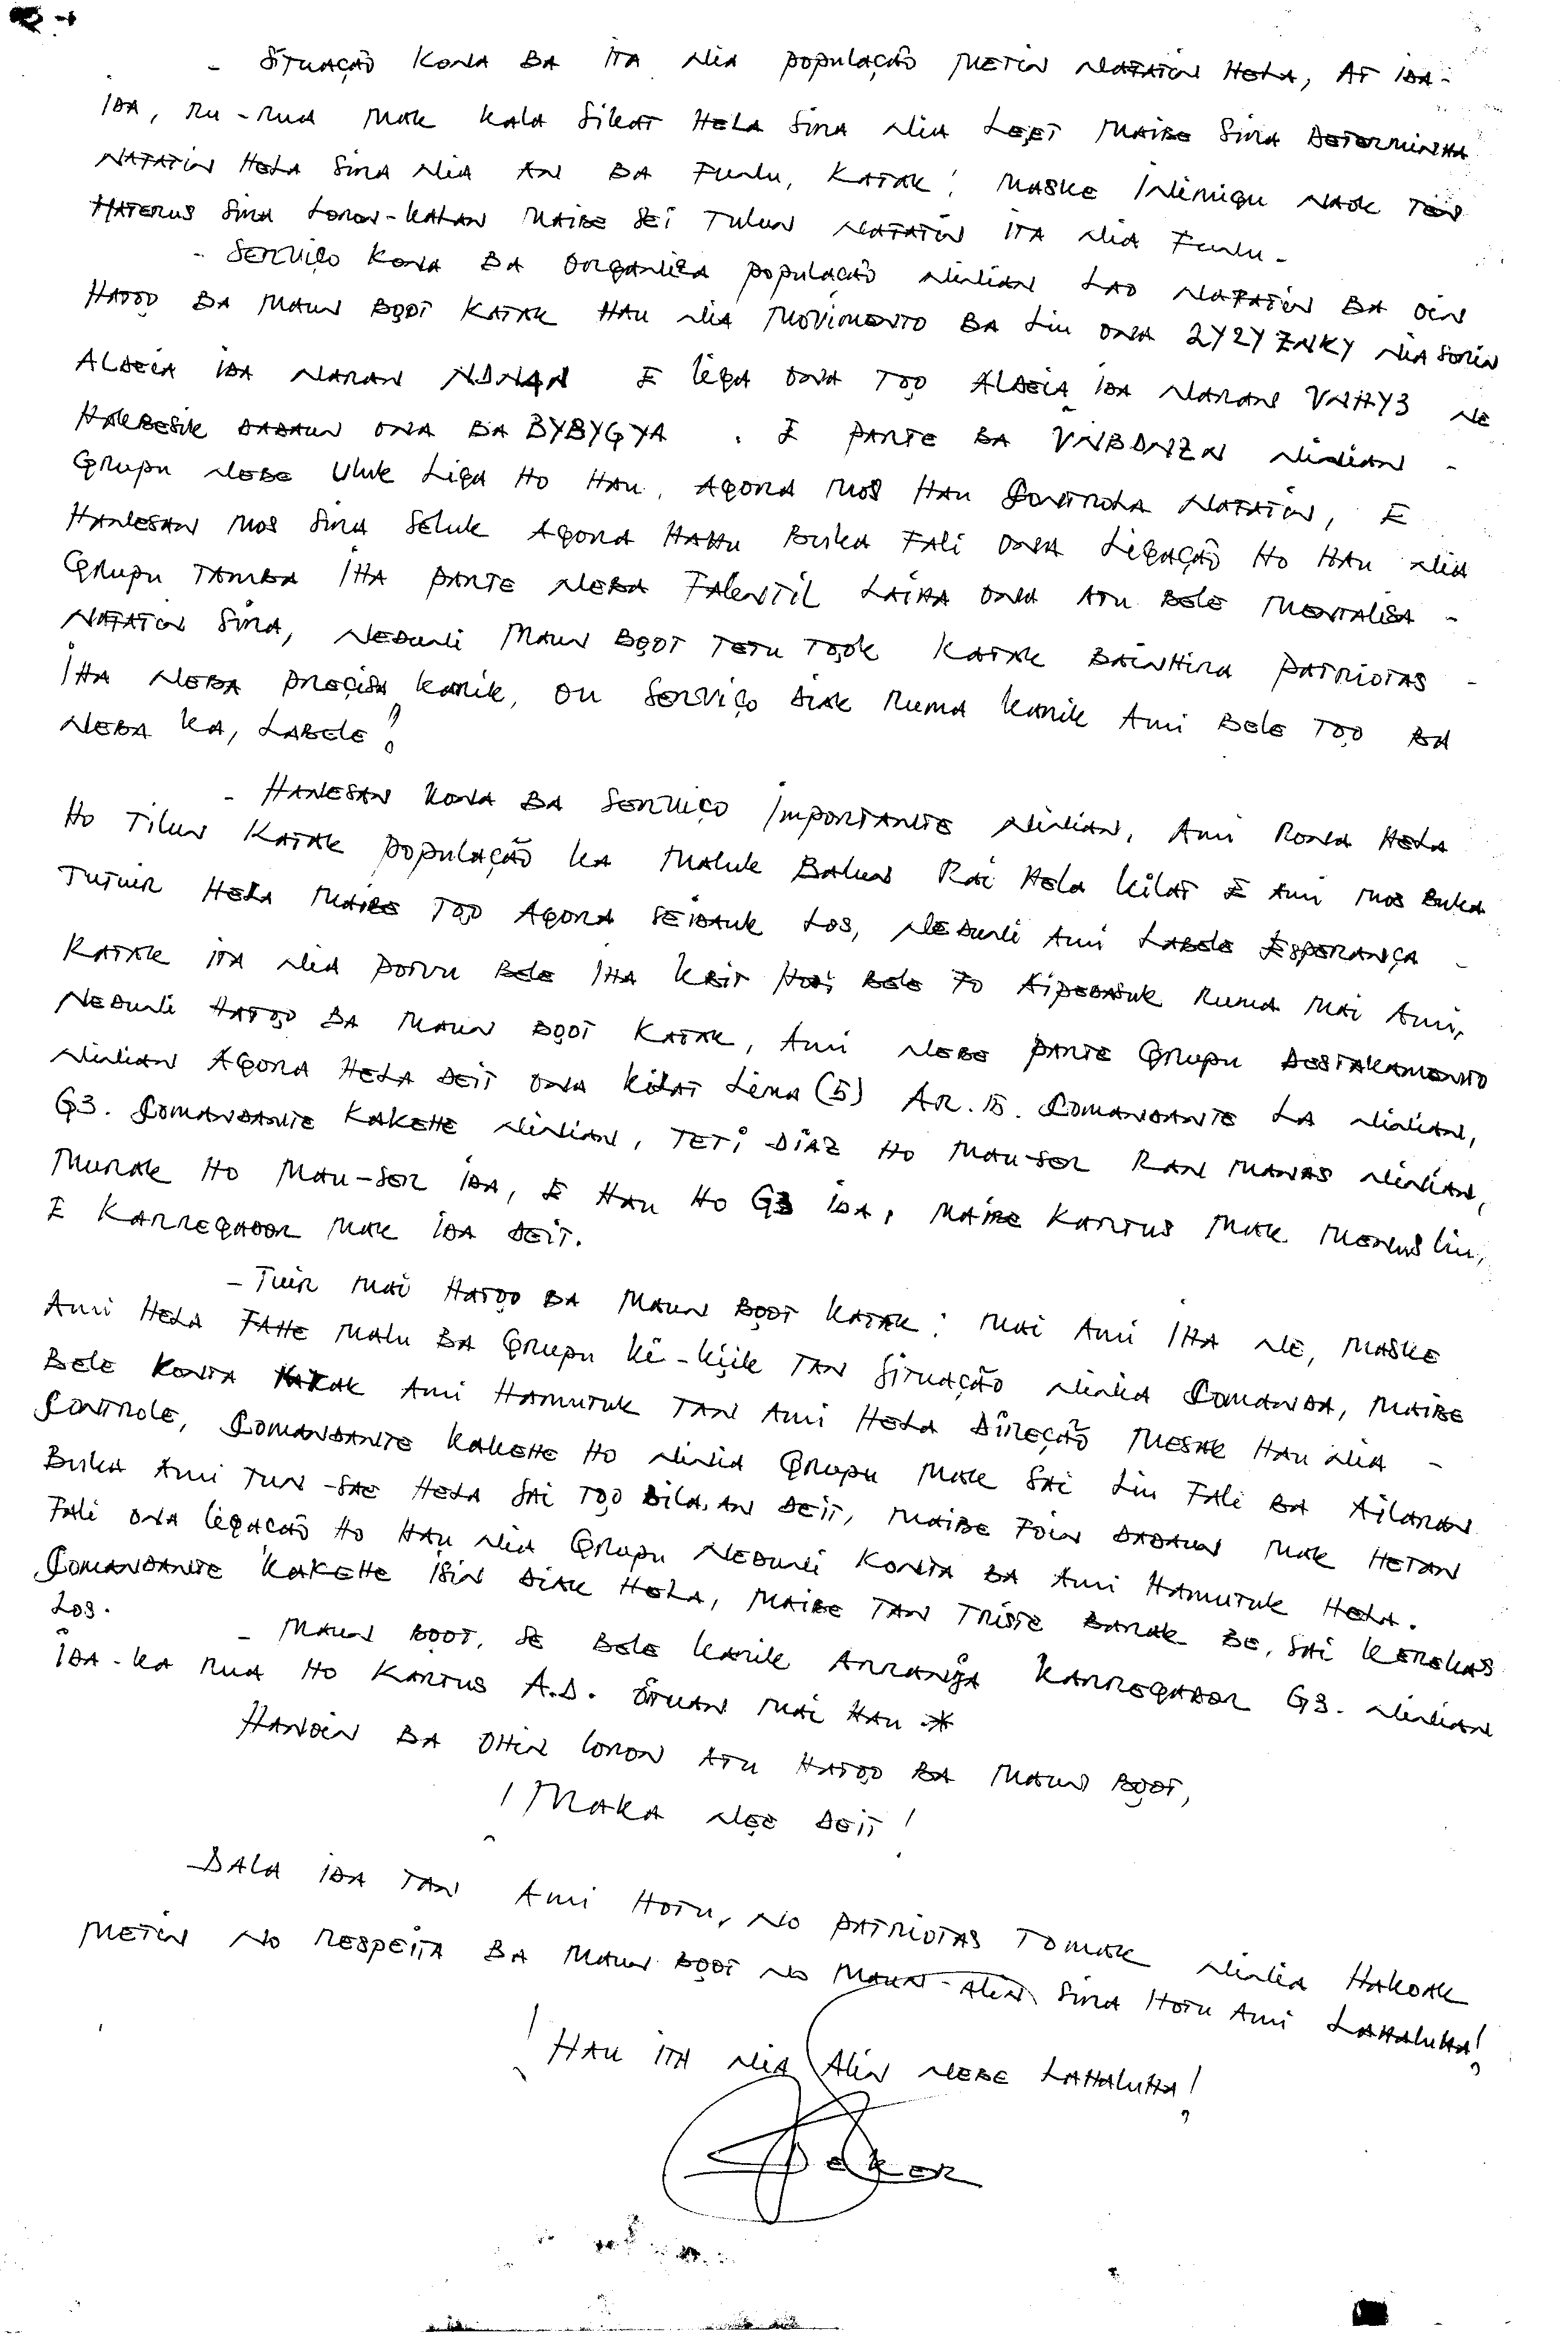 - SITUAÇÃO KONA BA ITA NIA POPULAÇÃO METIN NAFATIN HELA, AT IDA-
IDA, RU-RUA MAK KALA SIKAT HELA SIRA NIA LEET MAIBE SIRA DETERMINHA
NAFATIN HELA SIRA NIA AN BA FUNU, KATAK: MASKE INIMIGU NAOK TEN
HATERUS SIRA LORON-KALAN MAIBE SEI TULUN NAFATIN ITA NIA FUNU-
- SERVIÇO KONA BA ORGANIZA POPULAÇÃO NINIAN LAO NAFATIN BA OIN
HATOO BA MAUN BOOT KATAK HAU NIA MOVIMENTO BA LIU ONA 2Y2Y ZNKY NIA SORIN
ALDEIA IDA NARAN NDN4N E LIGA ONA TOO ALDEIA IDA NARAN VNHY3 NE
HAKBESIK DADAUN ONA BA BYBYGYA . E PARTE BA VNBDNZN NINIAN -
GRUPU NEBE ULUK LIGA HO HAU, AGORA MOS HAU CONTROLA NAFATIN, E
HANESAN MOS SIRA SELUK AGORA HAHU BUKA FALI ONA LIGAÇÃO HO HAU NIA
GRUPU TAMBA IHA PARTE NEBA FALENTIL LAIHA ONA ATU BELE MENTALISA -
NAFATIN SIRA, NEDUNI MAUN BOOT TETU TOOK KATAK BAINHIRA PATRIOTAS -
IHA NEBA PRECISA KARIK, OU SERVIÇO DIAK RUMA KARIK AMI BELE TOO BA
NEBA KA, LABELE?
- HANESAN KONA BA SERVIÇO IMPORTANTE NINIAN, AMI RONA HELA
HO TILUN KATAK POPULAÇÃO KA MALUK BALUN RAI HELA KILAT E AMI MOS BUKA
TUTUIR HELA MAIBE TOO AGORA SEIDAUK LOS, NEDUNI AMI LABELE ESPERANÇA -
KATAK ITA NIA POTVU BELE IHA KBIT HODI BELE FO AIPEDASUK RUMA MAI AMI,
NEDUNI HATOO BA MAUN BOOT KATAK, AMI NEBE PARTE GRUPU DESTAKAMENTO
NINIAN AGORA HELA DEIT ONA KILAT LIMA (5) AR.15. COMANDANTE LA NINIAN,
G3. COMANDANTE KAKEHE NINIAN, TETI DIAZ HO MAU-SER RAN MANAS NINIAN,
MURAK HO MAU-SER IDA, E HAU HO G3 IDA, MAIBE KARTUS MAK MENUS LIU,
E KARREGADOR MAK IDA DEIT.
- TUIR MAI HATOO BA MAUN BOOT KATAK: MAI AMI IHA NE, MASKE
AMI HELA FAHE MALU BA GRUPU KI-KIIK TAN SITUAÇÃO NINIA COMANDA, MAIBE
BELE KONTA KATAK AMI HAMUTUK TAN AMI HELA DIREÇÃO MESAK HAU NIA -
CONTROLE, COMANDANTE KAKEHE HO NINIA GRUPU MAK SAI LIU FALI BA AILARAN
BUKA AMI TUN-SAE HELA SAI TOO BILA, AN DEIT, MAIBE FOIN DADAUN MAK HETAN
FALI ONA LIGAÇÃO HO HAU NIA GRUPU NEDUNI KONTA BA AMI HAMUTUK HELA.
COMANDANTE KAKEHE ISIN DIAK HELA, MAIBE TAN TRISTE BARAK BE, SAI KREKAS
LOS.
- MAUN BOOT, SE BELE KARIK ARRANJA KARREGADOR G3. NINIAN
IDA-KA RUA HO KARTUS A.D. OITUAN MAI HAU *
HANOIN BA OHIN LORON ATU HATOO BA MAUN BOOT,
! MAKA NEE DEIT!
DALA IDA TAN AMI HOTU, NO PATRIOTAS TOMAK NINIA HAKOAK
METIN NO RESPEITA BA MAUN BOOT NO MAUN-ALIN SIRA HOTU AMI LAHALUHA!
! HAU ITA NIA ALIN NEBE LAHALUHA!
DEKER